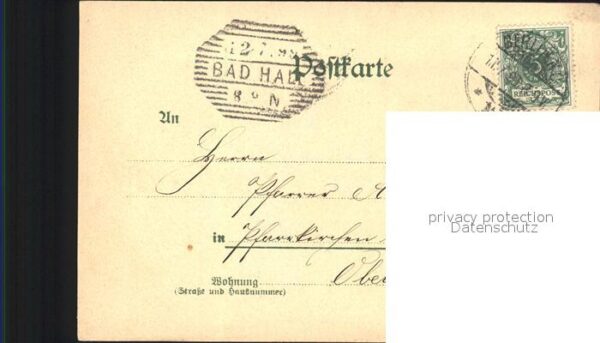 12.7.98
BAD HALL
8 9 N
Postkarte
BERLIN
REICHSPOST
An
Herrn
Pfarrer A
in Pfarrkirchen
Obe
Wohnung
(Straße und Hausnummer)
privacy protection
Datenschutz